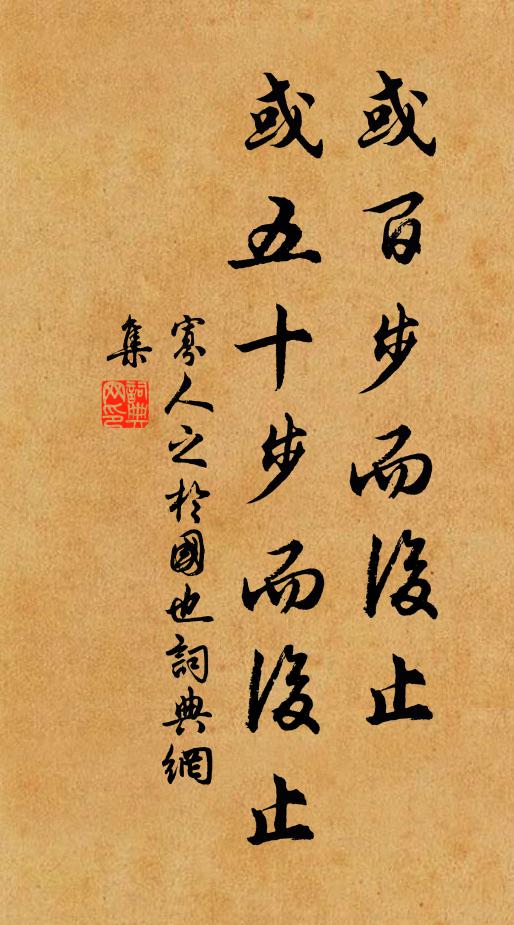 或百步而後止
或五十步而後止
寡人之於國也詞典網
集
詞典網印